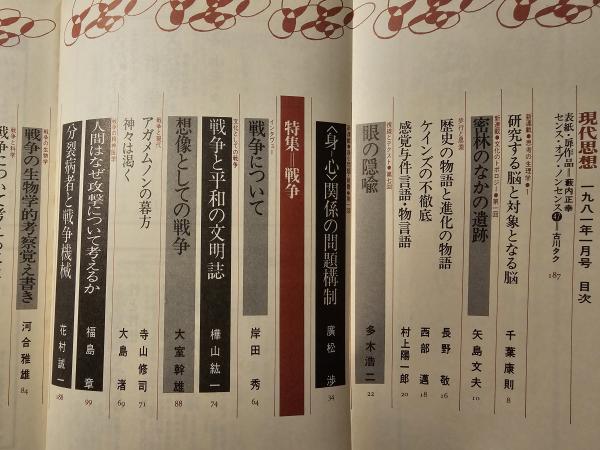 現代思想 一九八一年一月号 目次
表紙・扉作品=藪内正幸
センス・オブ・ノンセンス 47=古川タク 187
新連載●思考の生理学●1
研究する脳と対象となる脳 千葉康則 8
新連載●文化のトポロジー●第一回
密林のなかの遺跡 矢島文夫 10
歩行と思索
歴史の物語と進化の物語 長野敬 16
ケインズの不徹底 西部邁 18
感覚与件言語・物言語 村上陽一郎 20
視線とテクスト●第七回
眼の隠喩 多木浩二 22
〈身・心〉関係の問題構制 廣松渉 34
特集=戦争
インタヴュー
戦争について 岸田秀 64
文化としての戦争
戦争と平和の文明誌 樺山紘一 74
想像としての戦争 大室幹雄 88
戦争と現代
アガメムノンの募方 寺山修司 71
神々は渇く 大島渚 69
戦争の精神医学
人間はなぜ攻撃について考えるか 福島章 99
分裂病者と戦争機械 花村誠一 188
戦争の生物学
戦争の生物学的考察覚え書き 河合雅雄 84
戦争と科学